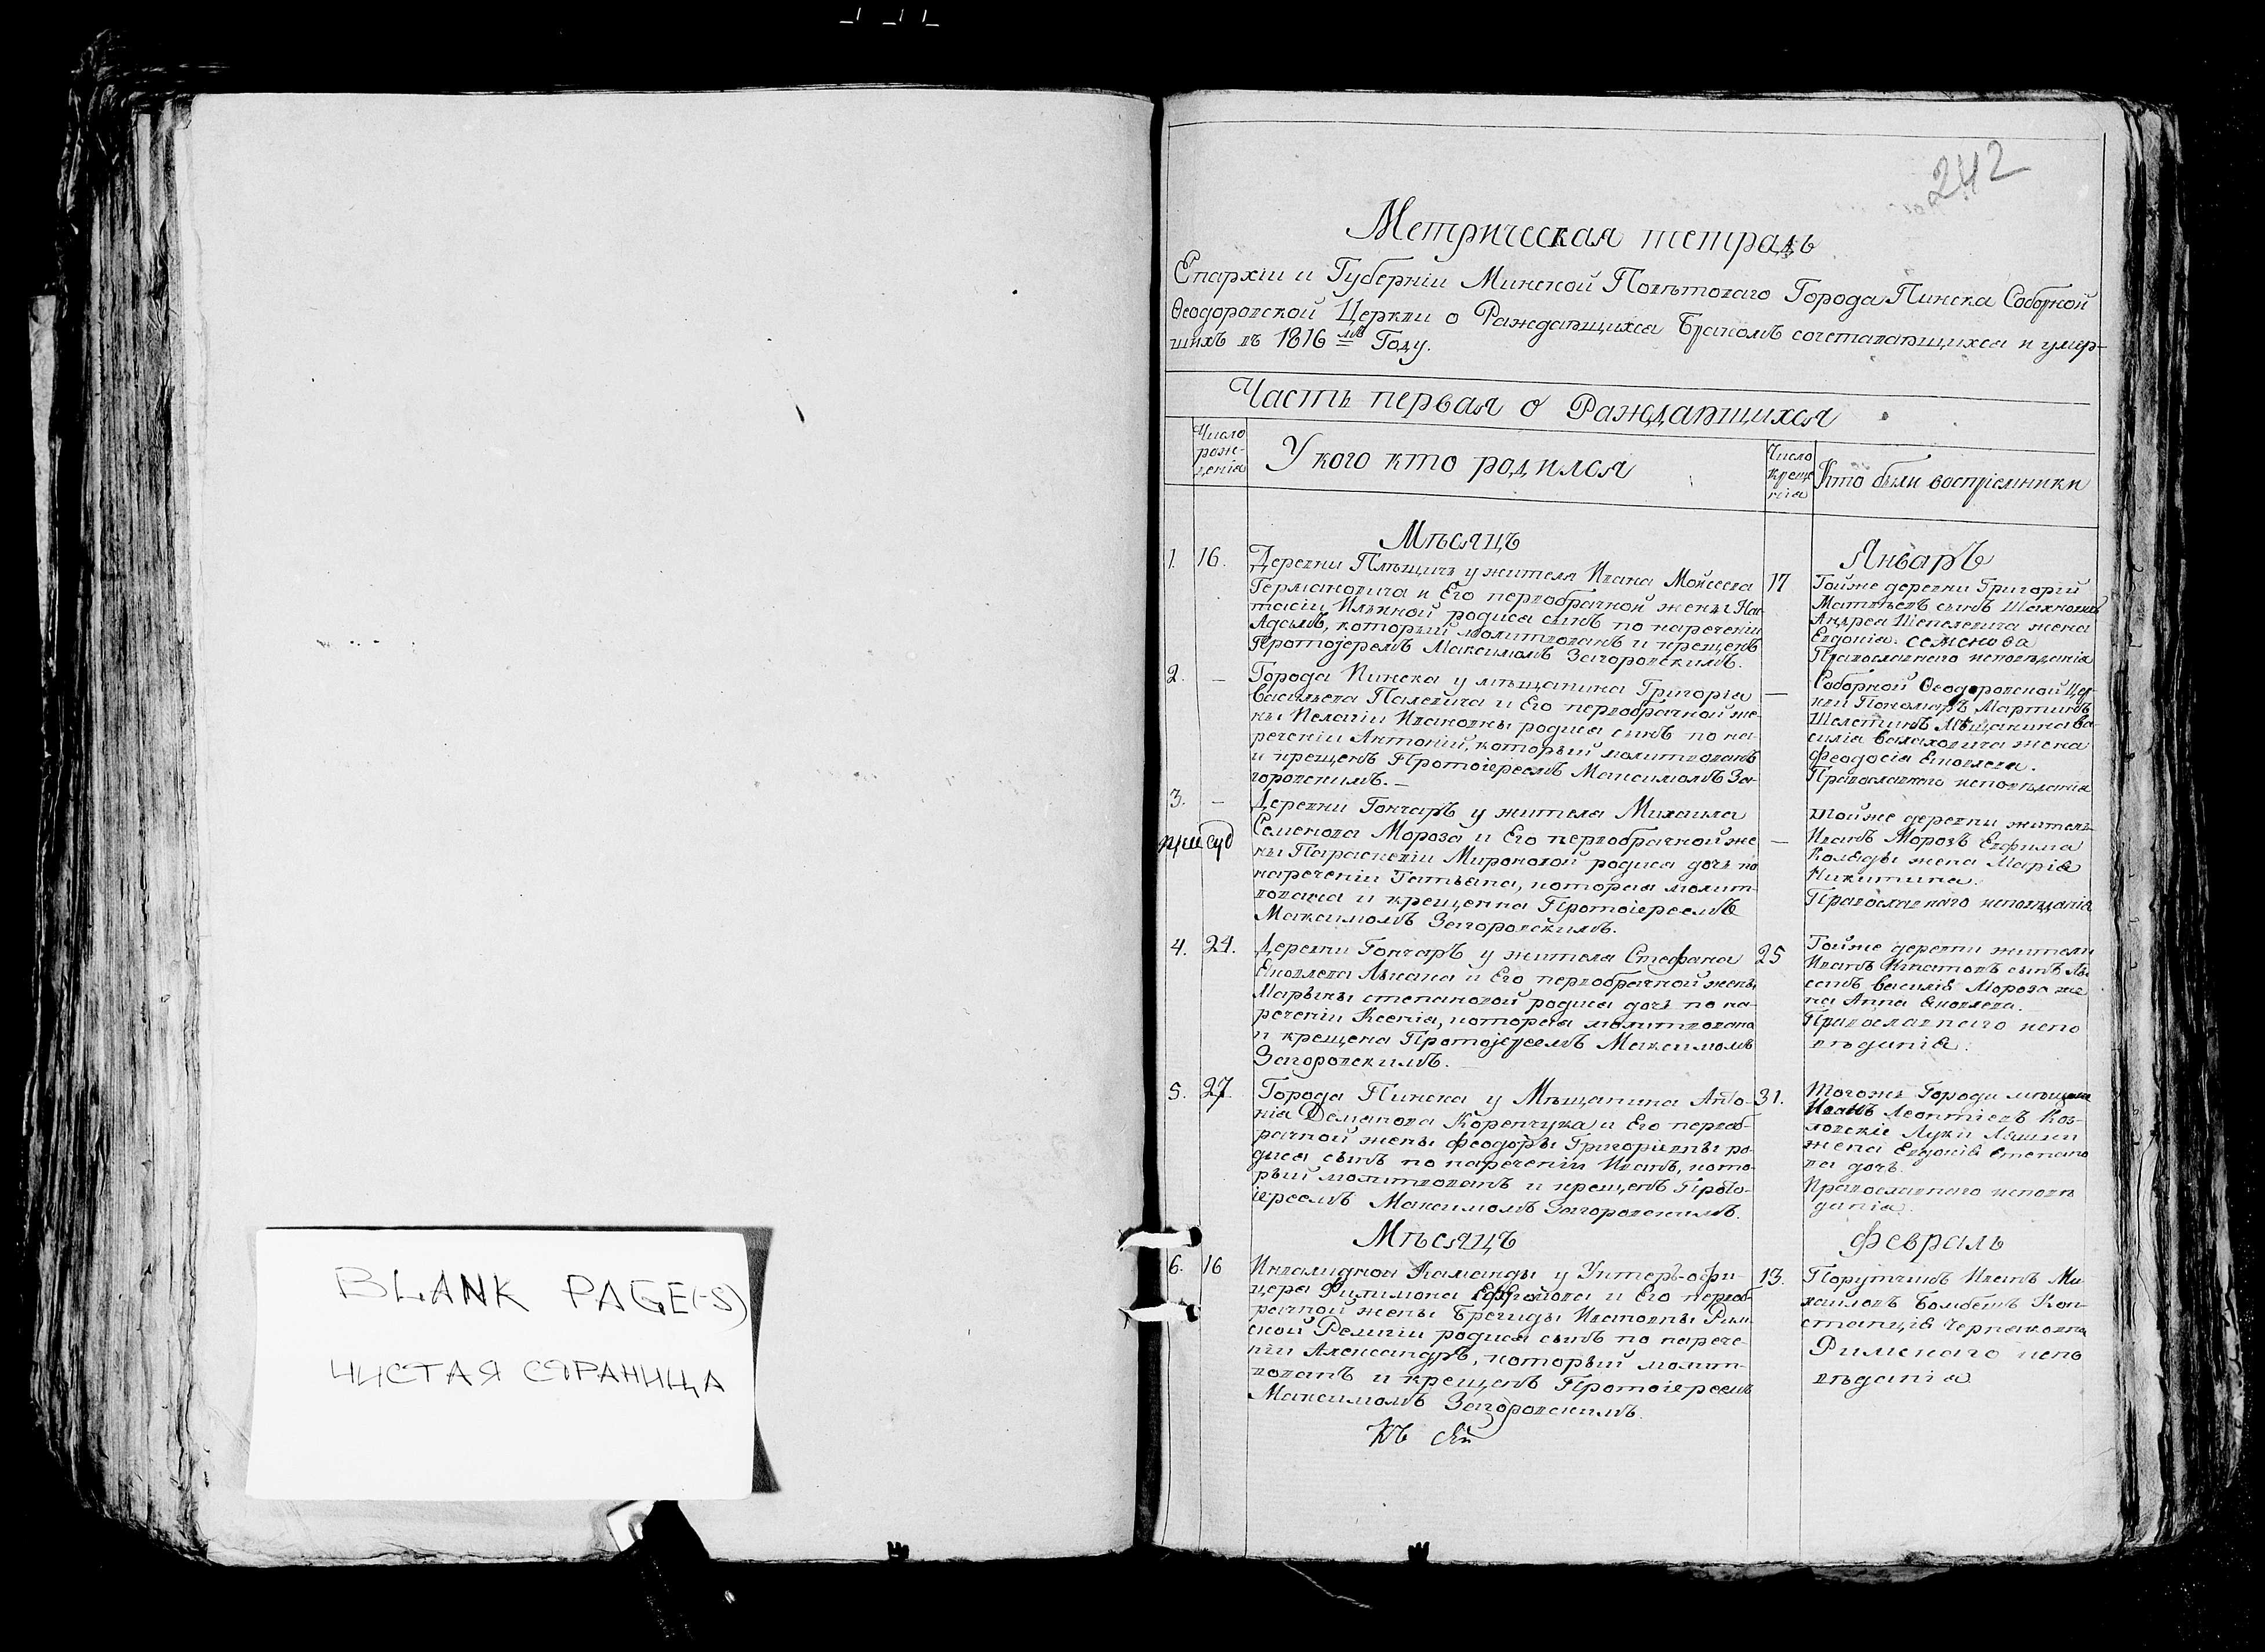 242
Метрическая тетрадь
Епархіи и Губерніи Минской Повѣтоваго Города Пинска Соборной
Ѳеодоровской Церкви о Раждавшихся Бракомъ сочетававшихся и умер-
шихъ въ 1816 мъ Году.
Часть первая о Раждавшихся
Число рож- денія
У кого кто родился
Число креще нія
Кто были воспріемники
Мѣсяцъ
Январъ
1. 16.
Деревни Плещичъ у жителя Ивана Мойсеева
Германовича и Его первобрачной жены Нас
тасіи Ильиной родися сынъ по нареченіи
Адамъ, который молитвованъ и крещенъ
Протоіереемъ Максимомъ Загоровскимъ.
17
Тойже деревни Григорій
Матвѣевъ сынъ
Андрея Шепелевича жена
Евдокія. семенова
Православнаго исповѣданія
2. —
Города Пинска у мѣщанина Григорія
Васильева Палевича и Его первобрачной же-
ны Пелагіи Ивановны родися сынъ по на-
реченіи Антоній, который молитвованъ
и крещенъ Протоіереемъ Максимомъ За-
горовскимъ. —
—
Соборной Ѳеодоровской Цер-
кви Пономаръ Мартинъ
Шелепинъ Мѣщанина Ва-
силія Валаховича жена
Феодосія Яковлева.
Православнаго исповѣданія
3. —
Деревни Гончаръ у жителя Михаила
Семенова Мороза и Его первобрачной же
ны Параскевіи Мироновой родися дочь по
нареченіи Татьяна, которая молит-
вована и крещенна Протоіереемъ
Максимомъ Загоровскимъ.
—
тойже деревни житель
Иванъ Морозъ Евфима
Коляды жена Марія
Никитина.
Православнаго исповѣданія
4. 24.
Деревни Гончаръ у жителя Стефана
Яковлева Лысака и Его первобрачной жены
Марьяны степановой родися дочь по на-
реченіи Ксенія, которая молитвована
и крещена Протоіереемъ Максимомъ
Загоровскимъ.
25
Тойже деревни жители
Иванъ Игнатовъ сынъ Лы
сакъ Василія Мороза же
на Анна Яковлева.
Православнаго испо
вѣданія.
5. 27.
Города Пинска у Мѣщанина Анто-
нія Демянова Коренчука и Его первоб-
рачной жены Феодоры Григоріевны ро-
дися сынъ по нареченіи Иванъ, кото-
рый молитвованъ и крещенъ Прото-
іереемъ Максимомъ Загоровскимъ.
31.
Тогожъ Города мѣщане
Иванъ Леонтіевъ Коз-
ловскіе Луки
жена Евдокія степано
ва дочь.
Православнаго исповѣ
данія.
Мѣсяцъ
Февраль
6. 16
Инвалидной Каманды у Унтеръ-офи-
цера Филимона Ефремова и Его первоб-
рачной жены Бригиды Ивановны Рим-
ской Религіи родися сынъ по нарече-
ніи Александръ, который молит-
вованъ и крещенъ Протоіереемъ
Максимомъ Загоровскимъ.
13.
Порутчикъ Иванъ Ми-
хаиловъ Кон-
станція
Римскаго испо
вѣданія.
Къ сей
BLANK PAGE(-S)
ЧИСТАЯ СТРАНИЦА